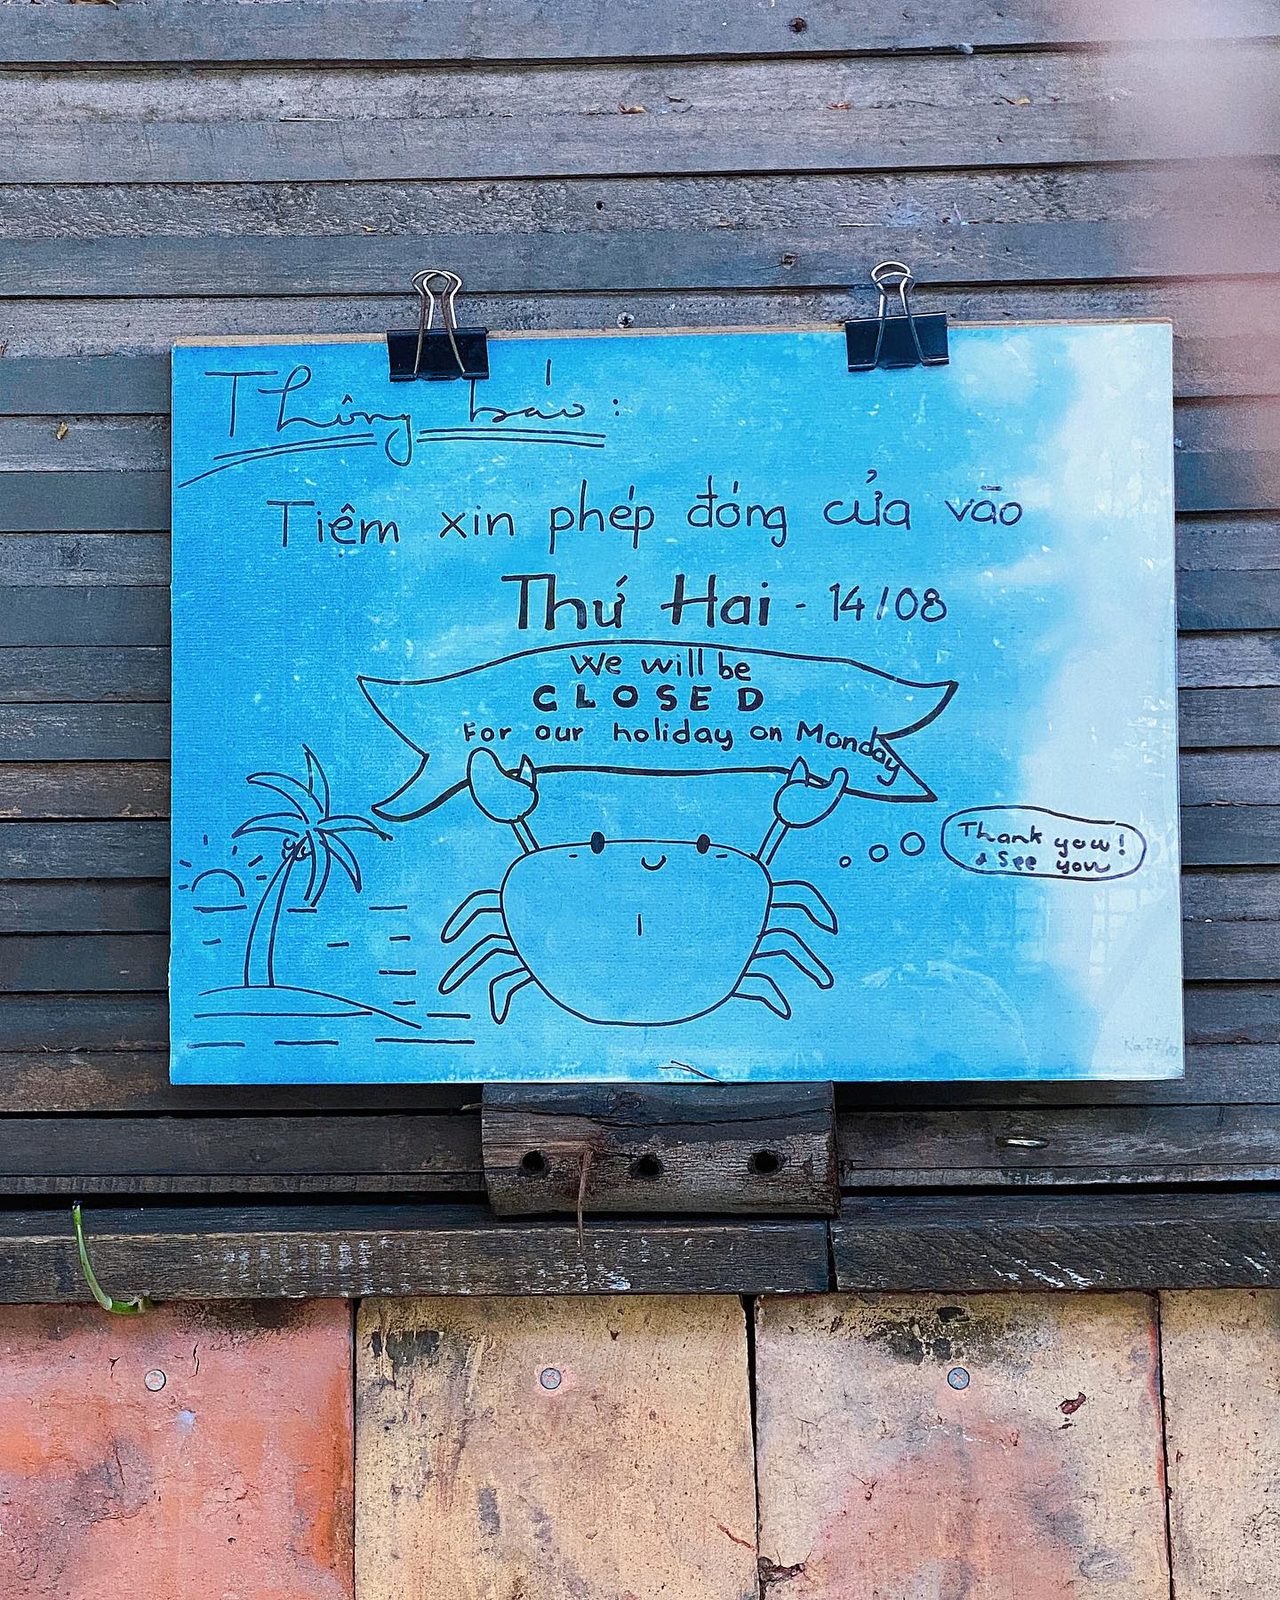 Thông báo:
Tiệm xin phép đóng cửa vào
Thứ Hai - 14/08
We will be
CLOSED
For our holiday on Monday
Thank you!
& See you